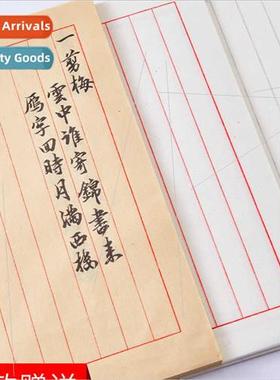 Arrivals
ty Goods
一剪梅
雲中誰寄錦書来
雁字回時月滿西樓